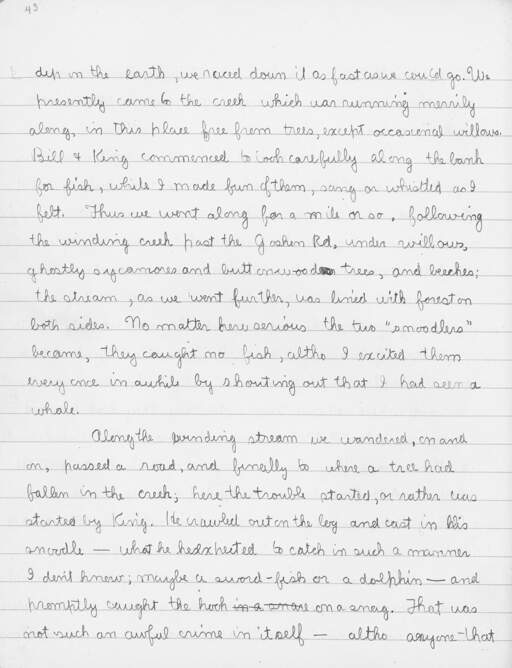 43
dip in the earth, we raced down it as fast as we could go. We
presently came to the creek which was running merrily
along, in this place free from trees, except occasional willows.
Bill & King commenced to look carefully along the bank
for fish, while I made fun of them, sang or whistled as I
felt. Thus we went along for a mile or so, following
the winding creek past the Goshen Rd, under willows,
ghostly sycamores and buttonwood trees, and beeches;
the stream, as we went further, was lined with forest on
both sides. No matter how serious the two "snoodlers"
became, they caught no fish, altho I excited them
every once in awhile by shouting out that I had seen a
whale.
Along the winding stream we wandered, on and
on, passed a road, and finally to where a tree had
fallen in the creek; here the trouble started, or rather was
started by King. He crawled out on the log and cast in his
snoodle — what he expected to catch in such a manner
I don't know; maybe a sword-fish or a dolphin — and
promptly caught the hook in a snare on a snag. That was
not such an awful crime in itself — altho anyone that